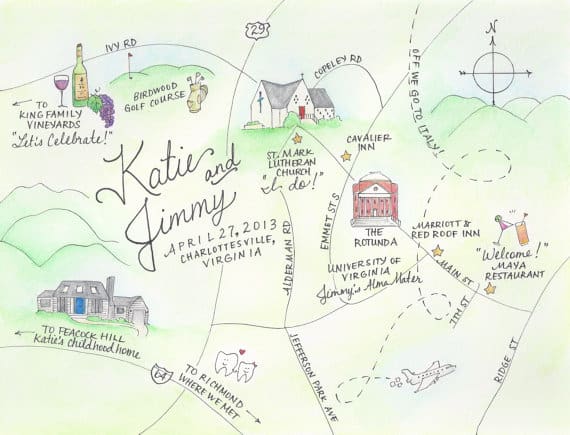 IVY RD
29
← TO
KING FAMILY
VINEYARDS
"Let's Celebrate!"
BIRDWOOD
GOLF COURSE
COPELEY RD
OFF WE GO TO ITALY!
N
Katie and
Jimmy
APRIL 27, 2013
CHARLOTTESVILLE,
VIRGINIA
ST. MARK
LUTHERAN
CHURCH
"I do!"
CAVALIER
INN
EMMET ST S
ALDERMAN RD
THE
ROTUNDA
UNIVERSITY OF
VIRGINIA
Jimmy's Alma Mater
MARRIOTT &
RED ROOF INN
MAIN ST
"Welcome!"
MAYA
RESTAURANT
7TH ST
RIDGE ST
← TO PEACOCK HILL
Katie's childhood home
64
TO RICHMOND
WHERE WE MET →
JEFFERSON PARK AVE